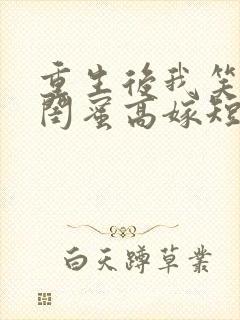 重生后我笑
闺蜜高嫁短
白天蹲草丛